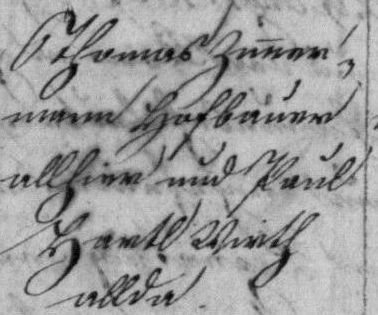 Thomas Zimer=
mann Hofbauer
allhier und Paul
Hartl Wirth
allda.